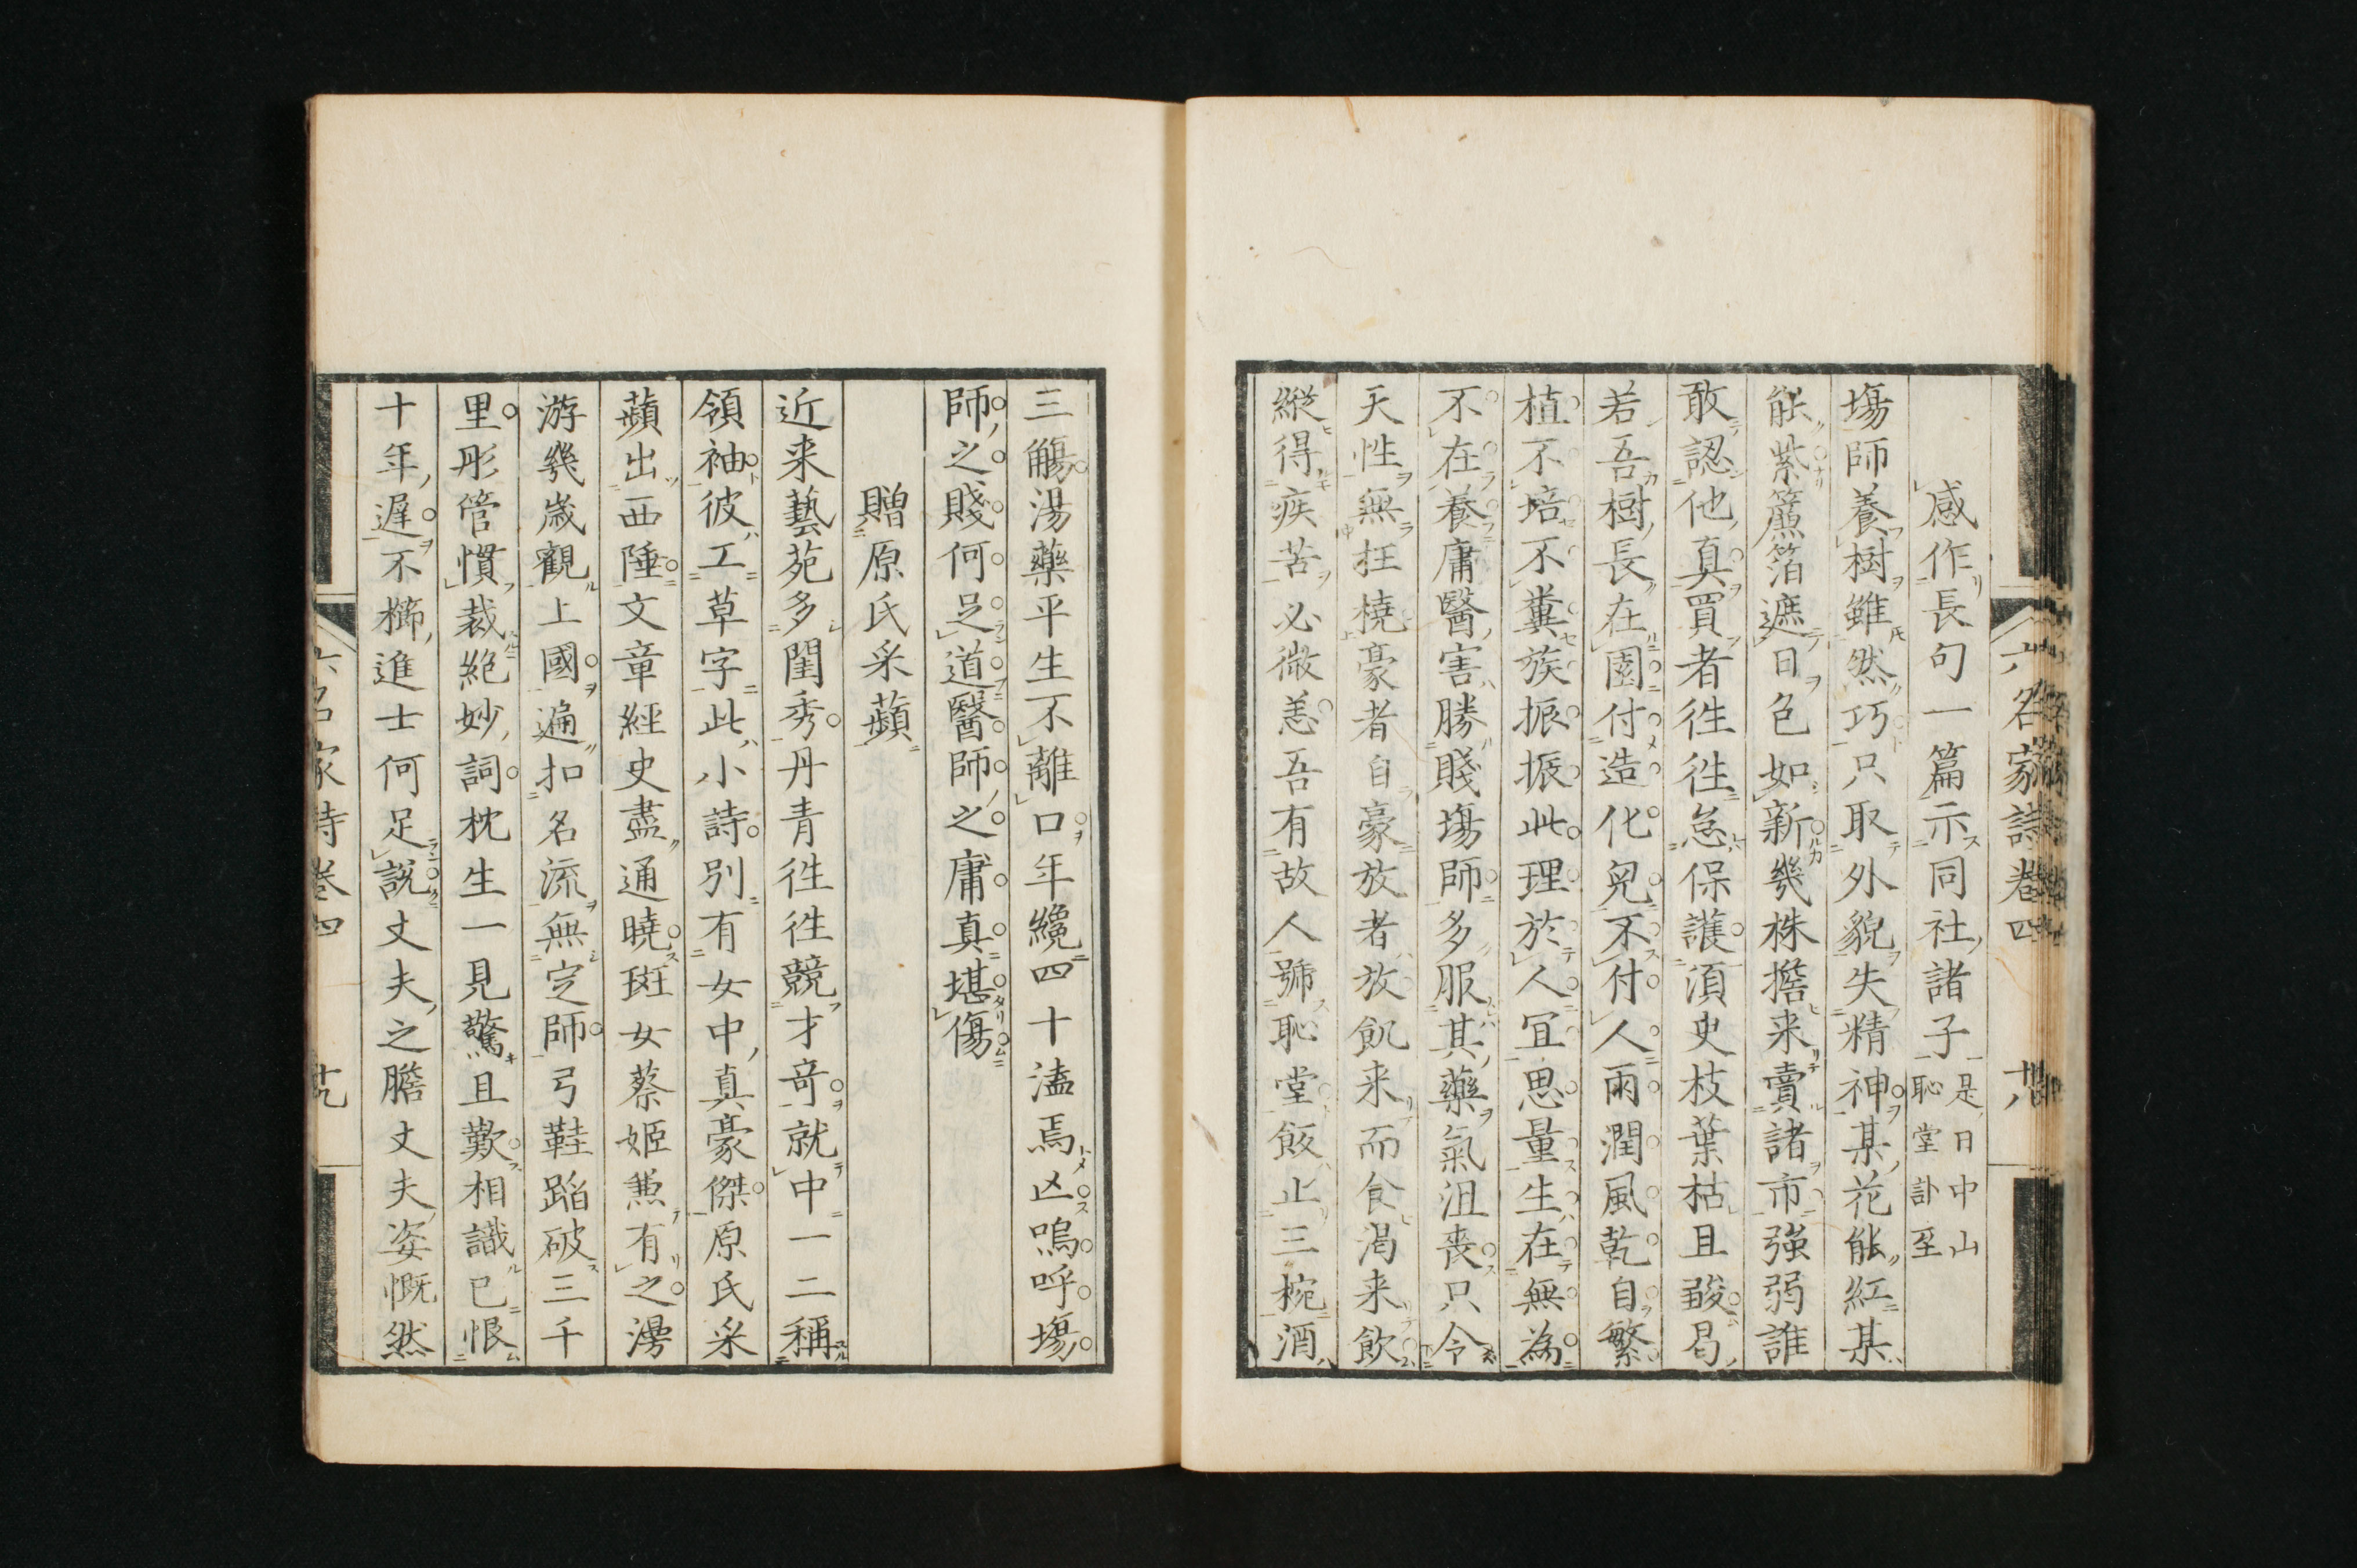 六名家詩卷四
十八
感作長句一篇示同社諸子是日中山恥堂訃至
塲師養樹雖然巧只取外貌失精神某花能紅某
能紫簾箔遮日色如新幾株擔来賣諸市強弱誰
敢認他真買者徃徃怠保護湏史枝葉枯且皴曷
若吾樹長在園付造化兒不付人雨潤風乾自繁
植不培不糞族振振此理於人宜思量生在無為
不在養庸醫害勝賤塲師多服其藥氣沮喪只令
天性無抂橈豪者自豪放者放飢来而食渴来飲
縱得疾苦必微恙吾有故人號恥堂飯止三椀酒
三觴湯藥平生不離口年纔四十溘焉凶嗚呼塲
師之賤何足道醫師之庸真堪傷
贈原氏采蘋
近来藝苑多閨秀丹青徃徃競才竒就中一二稱
領袖彼工草字此小詩別有女中真豪傑原氏采
蘋出西陲文章經史盡通曉斑女蔡姬兼有之漫
游幾嵗觀上國遍扣名流無㝎師弓鞋蹈破三千
里彤管慣裁絶妙詞枕生一見驚且歎相識已恨
十年遲不櫛進士何足說丈夫之膽丈夫姿慨然
六名家詩卷四
十九